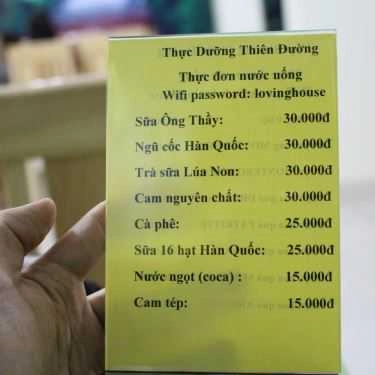 Thực Dưỡng Thiên Đường
Thực đơn nước uống
Wifi password: lovinghouse
Sữa Ông Thầy: 30.000đ
Ngũ cốc Hàn Quốc: 30.000đ
Trà sữa Lúa Non: 30.000đ
Cam nguyên chất: 30.000đ
Cà phê: 25.000đ
Sữa 16 hạt Hàn Quốc: 25.000đ
Nước ngọt (coca) : 15.000đ
Cam tép: 15.000đ